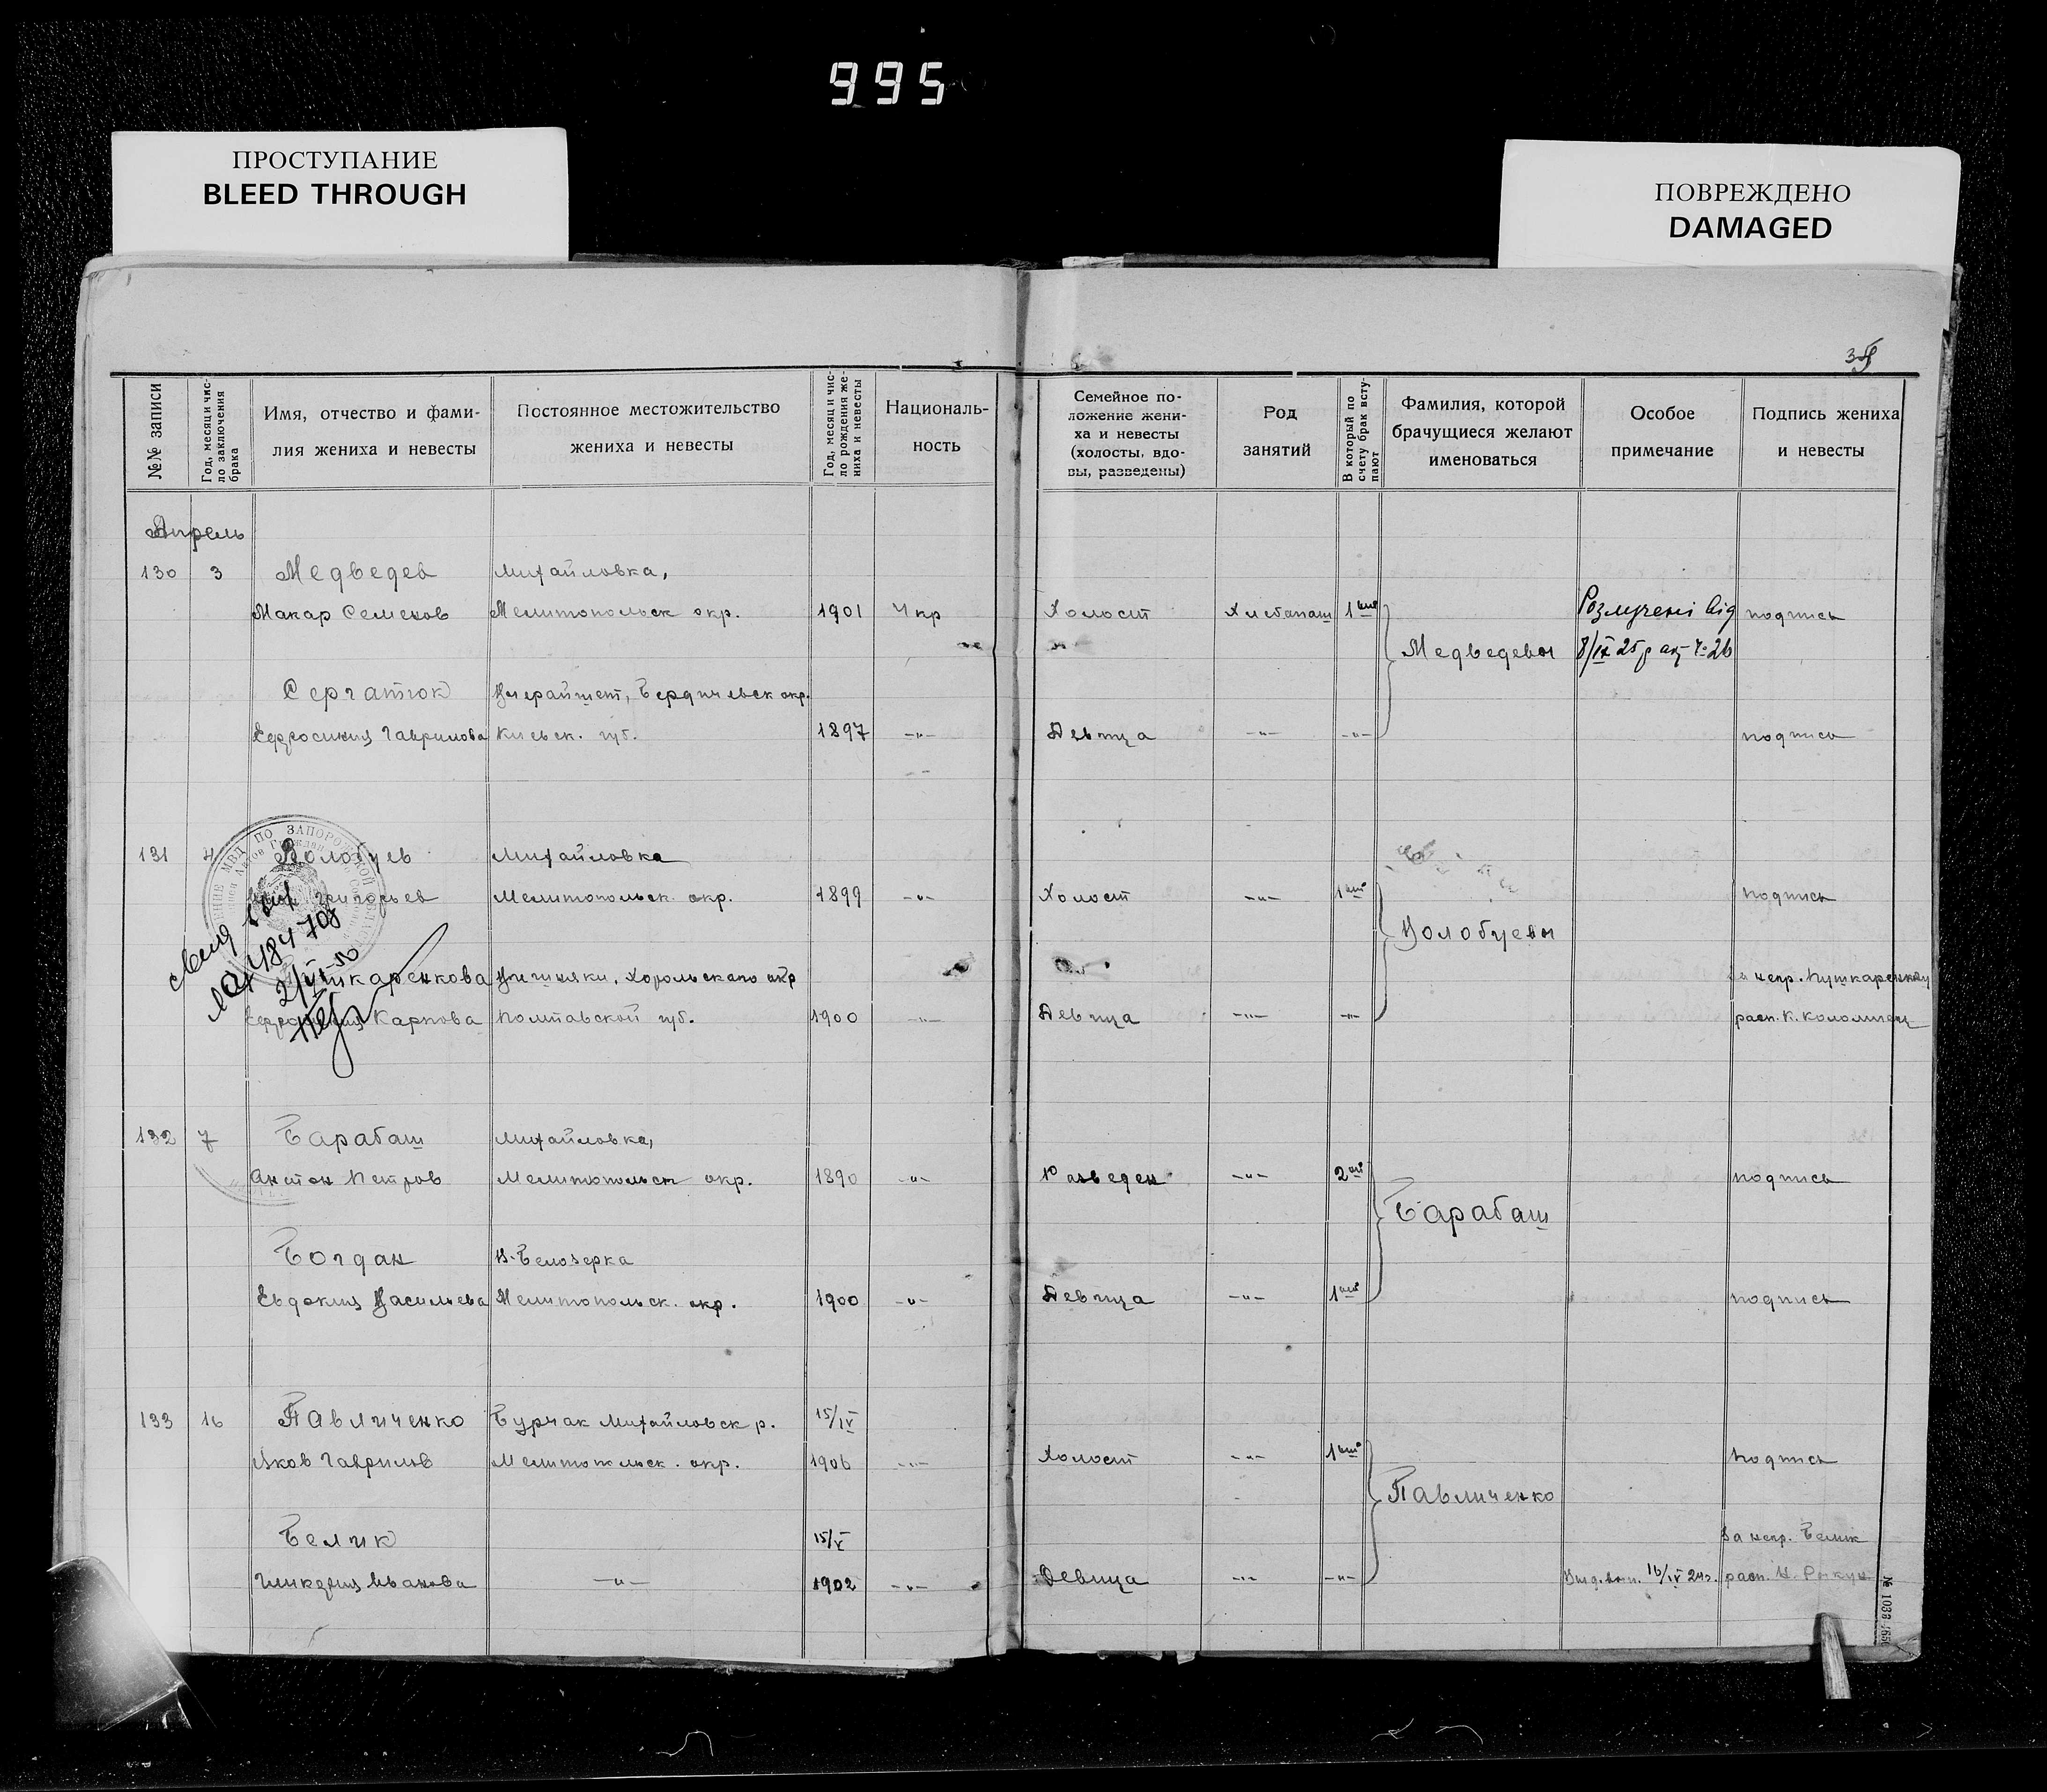 995
ПРОСТУПАНИЕ
BLEED THROUGH
ПОВРЕЖДЕНО
DAMAGED
№№ записи
Год, месяц и чис-
ло заключения
брака
Имя, отчество и фами-
лия жениха и невесты
Постоянное местожительство
жениха и невесты
Год, месяц и чис-
ло рождения же-
ниха и невесты
Националь-
ность
Семейное по-
ложение жени-
ха и невесты
(холосты, вдо-
вы, разведены)
Род
занятий
В который по
счету брак всту-
пают
Фамилия, которой
брачущиеся желают
именоваться
Особое
примечание
Подпись жениха
и невесты
Апрель
130 3 Медведев Михайловка,
Макар Семенов Мелитопольск окр. 1901 Укр Холост Хлебопаш 1 Розлучені від подпись
Медведевы 8/IX 25 р акт № 26
Сергатюк Бердичевск окр.
Ефросиния Гаврилова Киевск. губ. 1897 -"- Девица -"- -"- подпись
131 4 Волобуев Михайловка
Григорьев Мелитопольск. окр. 1899 -"- Холост -"- 1 подпись
Волобуевы
Пушкаренкова Хорольского окр за непр. Пушкаренкову
Карпова Полтавской губ. 1900 -"- Девица -"- -"- расп. К. Коломиец
132 7 Барабаш Михайловка,
Антон Петров Мелитопольск окр. 1890 -"- Разведен -"- 2 подпись
Барабаш
Богдан В-Белозерка
Евдокия Васильева Мелитопольск. окр. 1900 -"- Девица -"- 1 подпись
133 16 Павличенко Бурчак Михайловск р. 15/IV
Яков Гаврилов Мелитопольск. окр. 1906 -"- Холост -"- 1 подпись
Павличенко
Белик 15/V за непр. Белик
Гликерия Иванова -"- 1902 -"- Девица -"- -"- 16/IV 24г. расп.